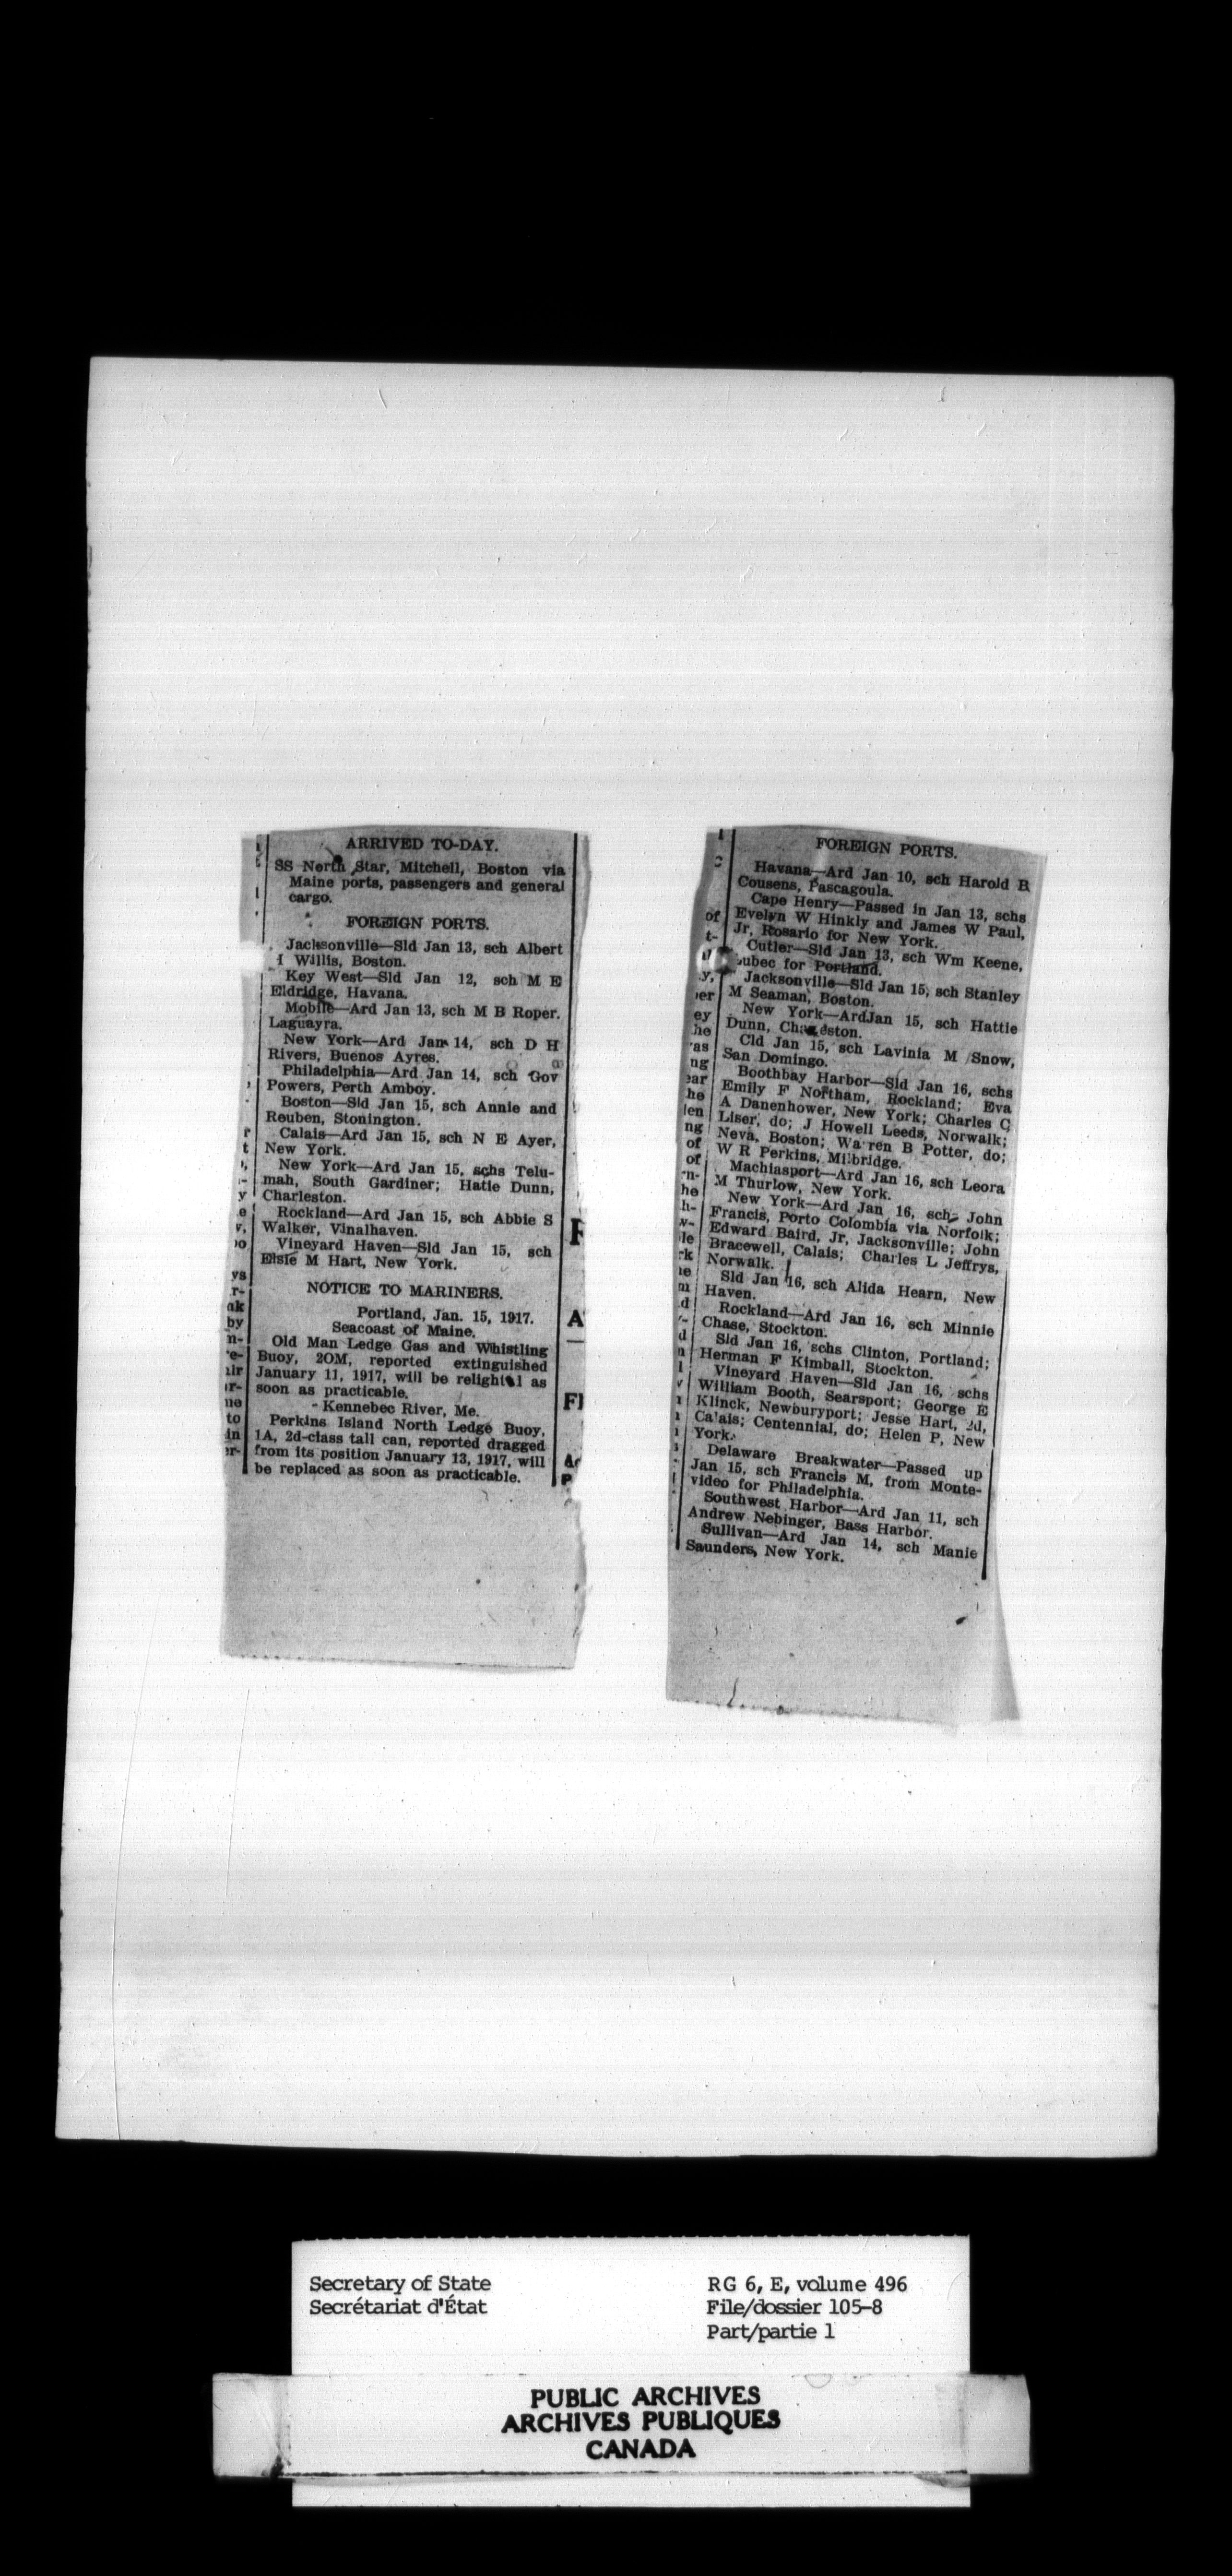 ARRIVED TO-DAY.
SS North Star, Mitchell, Boston via
Maine ports, passengers and general
cargo.
FOREIGN PORTS.
Jacksonville—Sld Jan 13, sch Albert
Willis, Boston.
Key West—Sld Jan 12, sch M E
Eldridge, Havana.
Mobile—Ard Jan 13, sch M B Roper.
Laguayra.
New York—Ard Jan 14, sch D H
Rivers, Buenos Ayres.
Philadelphia—Ard Jan 14, sch Gov
Powers, Perth Amboy.
Boston—Sld Jan 15, sch Annie and
Reuben, Stonington.
Calais—Ard Jan 15, sch N E Ayer,
New York.
New York—Ard Jan 15, schs Telu-
mah, South Gardiner; Hatie Dunn,
Charleston.
Rockland—Ard Jan 15, sch Abbie S
Walker, Vinalhaven.
Vineyard Haven—Sld Jan 15, sch
Elsie M Hart, New York.
NOTICE TO MARINERS.
Portland, Jan. 15, 1917.
Seacoast of Maine.
Old Man Ledge Gas and Whistling
Buoy, 2OM, reported extinguished
January 11, 1917, will be as
soon as practicable.
Kennebec River, Me.
Perkins Island North Ledge Buoy,
1A, 2d-class tall can, reported dragged
from its position January 13, 1917, will
be replaced as soon as practicable.
FOREIGN PORTS.
Havana—Ard Jan 10, sch Harold B
Cousens, Pascagoula.
Cape Henry—Passed in Jan 13, schs
Evelyn W Hinkly and James W Paul,
Jr, Rosario for New York.
Cutler—Sld Jan 13, sch Wm Keene,
ubec for Portland.
Jacksonville—Sld Jan 15, sch Stanley
M Seaman, Boston.
New York—ArdJan 15, sch Hattie
Dunn,
Cld Jan 15, sch Lavinia M Snow,
San Domingo.
Boothbay Harbor—Sld Jan 16, schs
Emily F Northam, Rockland; Eva
A Danenhower, New York; Charles C
Liser, do; J Howell Leeds, Norwalk;
Neva, Boston; Warren B Potter, do;
W R Perkins, Milbridge.
Machiasport—Ard Jan 16, sch Leora
M Thurlow, New York.
New York—Ard Jan 16, schs John
Francis, Porto Colombia via Norfolk;
Edward Baird, Jr, Jacksonville; John
Bracewell, Calais; Charles L Jeffrys,
Norwalk.
Sld Jan 16, sch Alida Hearn, New
Haven.
Rockland—Ard Jan 16, sch Minnie
Chase, Stockton.
Sld Jan 16, schs Clinton, Portland;
Herman F Kimball, Stockton.
Vineyard Haven—Sld Jan 16, schs
William Booth, Searsport; George E
Klinck, Newburyport; Jesse Hart, 2d,
Calais; Centennial, do; Helen P, New
York.
Delaware Breakwater—Passed up
Jan 15, sch Francis M, from Monte-
video for Philadelphia.
Southwest Harbor—Ard Jan 11, sch
Andrew Nebinger, Bass Harbor.
Sullivan—Ard Jan 14, sch Manie
Saunders, New York.
Secretary of State
Secrétariat d'État
RG 6, E, volume 496
File/dossier 105-8
Part/partie 1
PUBLIC ARCHIVES
ARCHIVES PUBLIQUES
CANADA